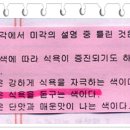 각에서 미각의 설명 중 틀린 것은
색에 따라 식욕이 증진되기도 하
강하게 식욕을 자극하는 색이다.
식욕을 돋구는 색이다.
단맛과 매운맛이 나는 색이다.